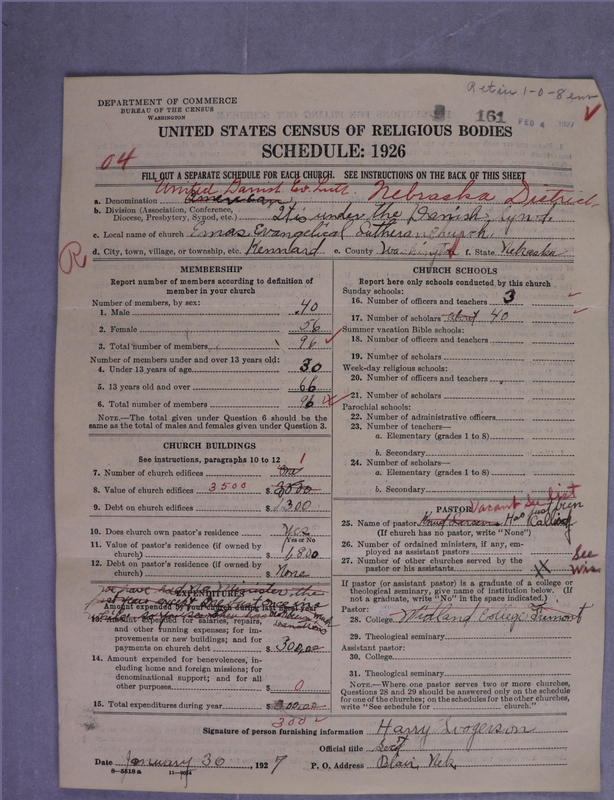 Retur 1-0-8
DEPARTMENT OF COMMERCE
BUREAU OF THE CENSUS
WASHINGTON
161
FEB 4 1927
UNITED STATES CENSUS OF RELIGIOUS BODIES
SCHEDULE: 1926
04
FILL OUT A SEPARATE SCHEDULE FOR EACH CHURCH. SEE INSTRUCTIONS ON THE BACK OF THIS SHEET
United Danish Ev. Luth. Nebraska District
a. Denomination American
b. Division (Association, Conference, Diocese, Presbytery, Synod, etc.) It is under the Danish Synod
c. Local name of church Emaus Evangelical Lutheran Church
d. City, town, village, or township, etc. Kennard e. County Washington f. State Nebraska
R
MEMBERSHIP
Report number of members according to definition of member in your church
Number of members, by sex:
1. Male 40
2. Female 56
3. Total number of members 96
Number of members under and over 13 years old:
4. Under 13 years of age 30
5. 13 years old and over 66
6. Total number of members 96
NOTE.—The total given under Question 6 should be the same as the total of males and females given under Question 3.
CHURCH BUILDINGS
See instructions, paragraphs 10 to 12
7. Number of church edifices One 1
8. Value of church edifices 3500 $ 3500
9. Debt on church edifices $ 1300
10. Does church own pastor's residence? Yes
Yes or No
11. Value of pastor's residence (if owned by church) $ 1,800
12. Debt on pastor's residence (if owned by church) $ None
EXPENDITURES
13. Amount expended for salaries, repairs, and other running expenses; for improvements or new buildings; and for payments on church debt $ 300.00
14. Amount expended for benevolences, including home and foreign missions; for denominational support; and for all other purposes $ 0
15. Total expenditures during year $ 300.00
300
CHURCH SCHOOLS
Report here only schools conducted by this church
Sunday schools:
16. Number of officers and teachers 3
17. Number of scholars about 40
Summer vacation Bible schools:
18. Number of officers and teachers
19. Number of scholars
Week-day religious schools:
20. Number of officers and teachers
21. Number of scholars
Parochial schools:
22. Number of administrative officers
23. Number of teachers—
a. Elementary (grades 1 to 8)
b. Secondary
24. Number of scholars—
a. Elementary (grades 1 to 8)
b. Secondary
PASTOR Vacant See List
25. Name of pastor Knud Larsen Has just been Called
(If church has no pastor, write "None")
26. Number of ordained ministers, if any, employed as assistant pastors
27. Number of other churches served by the pastor or his assistants See
If pastor (or assistant pastor) is a graduate of a college or theological seminary, give name of institution below. (If not a graduate, write "No" in the space indicated.)
Pastor:
28. College Midland College Fremont
29. Theological seminary
Assistant pastor:
30. College
31. Theological seminary
NOTE.—Where one pastor serves two or more churches, Questions 28 and 29 should be answered only on the schedule for one of the churches; on the schedules for the other churches, write "See schedule for church."
Signature of person furnishing information Harry
Official title Sect
Date January 30, 1927 P. O. Address Blair Neb.
8-5518a 11-9034